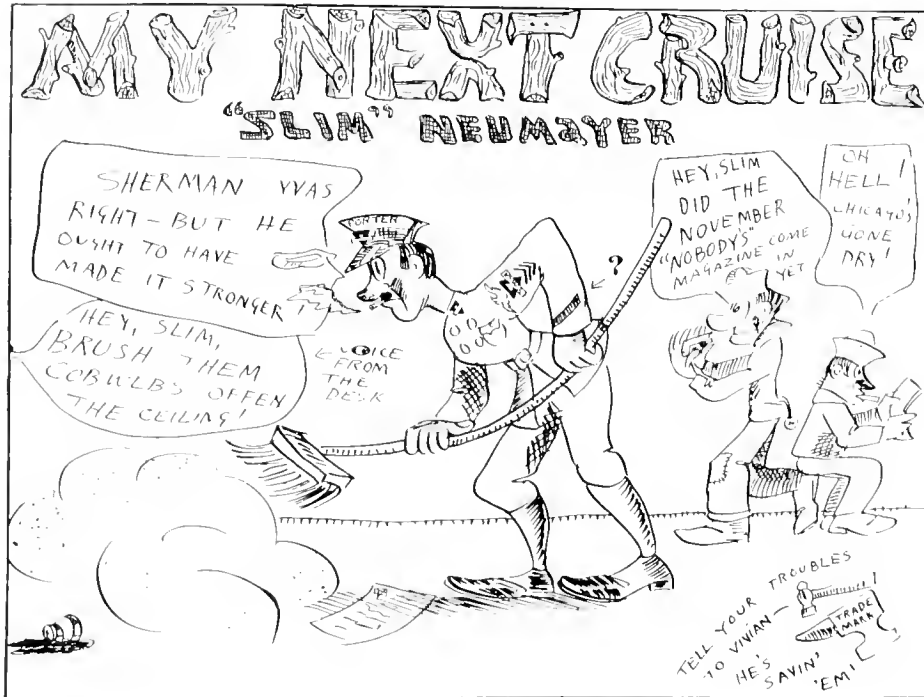 MY NEXT CRUISE
"SLIM" NEUMAYER
SHERMAN WAS
RIGHT - BUT HE
OUGHT TO HAVE
MADE IT STRONGER
HEY, SLIM,
BRUSH THEM
COBWEBS OFFEN
THE CEILING!
VOICE
FROM
THE
DESK
PORTER
?
HEY, SLIM
DID THE
NOVEMBER
"NOBODY'S"
MAGAZINE COME
IN
YET
OH
HELL!
CHICAGO'S
GONE
DRY!
TELL YOUR TROUBLES
TO VIVIAN -
HE'S
SAVIN'
'EM'
TRADE
MARK